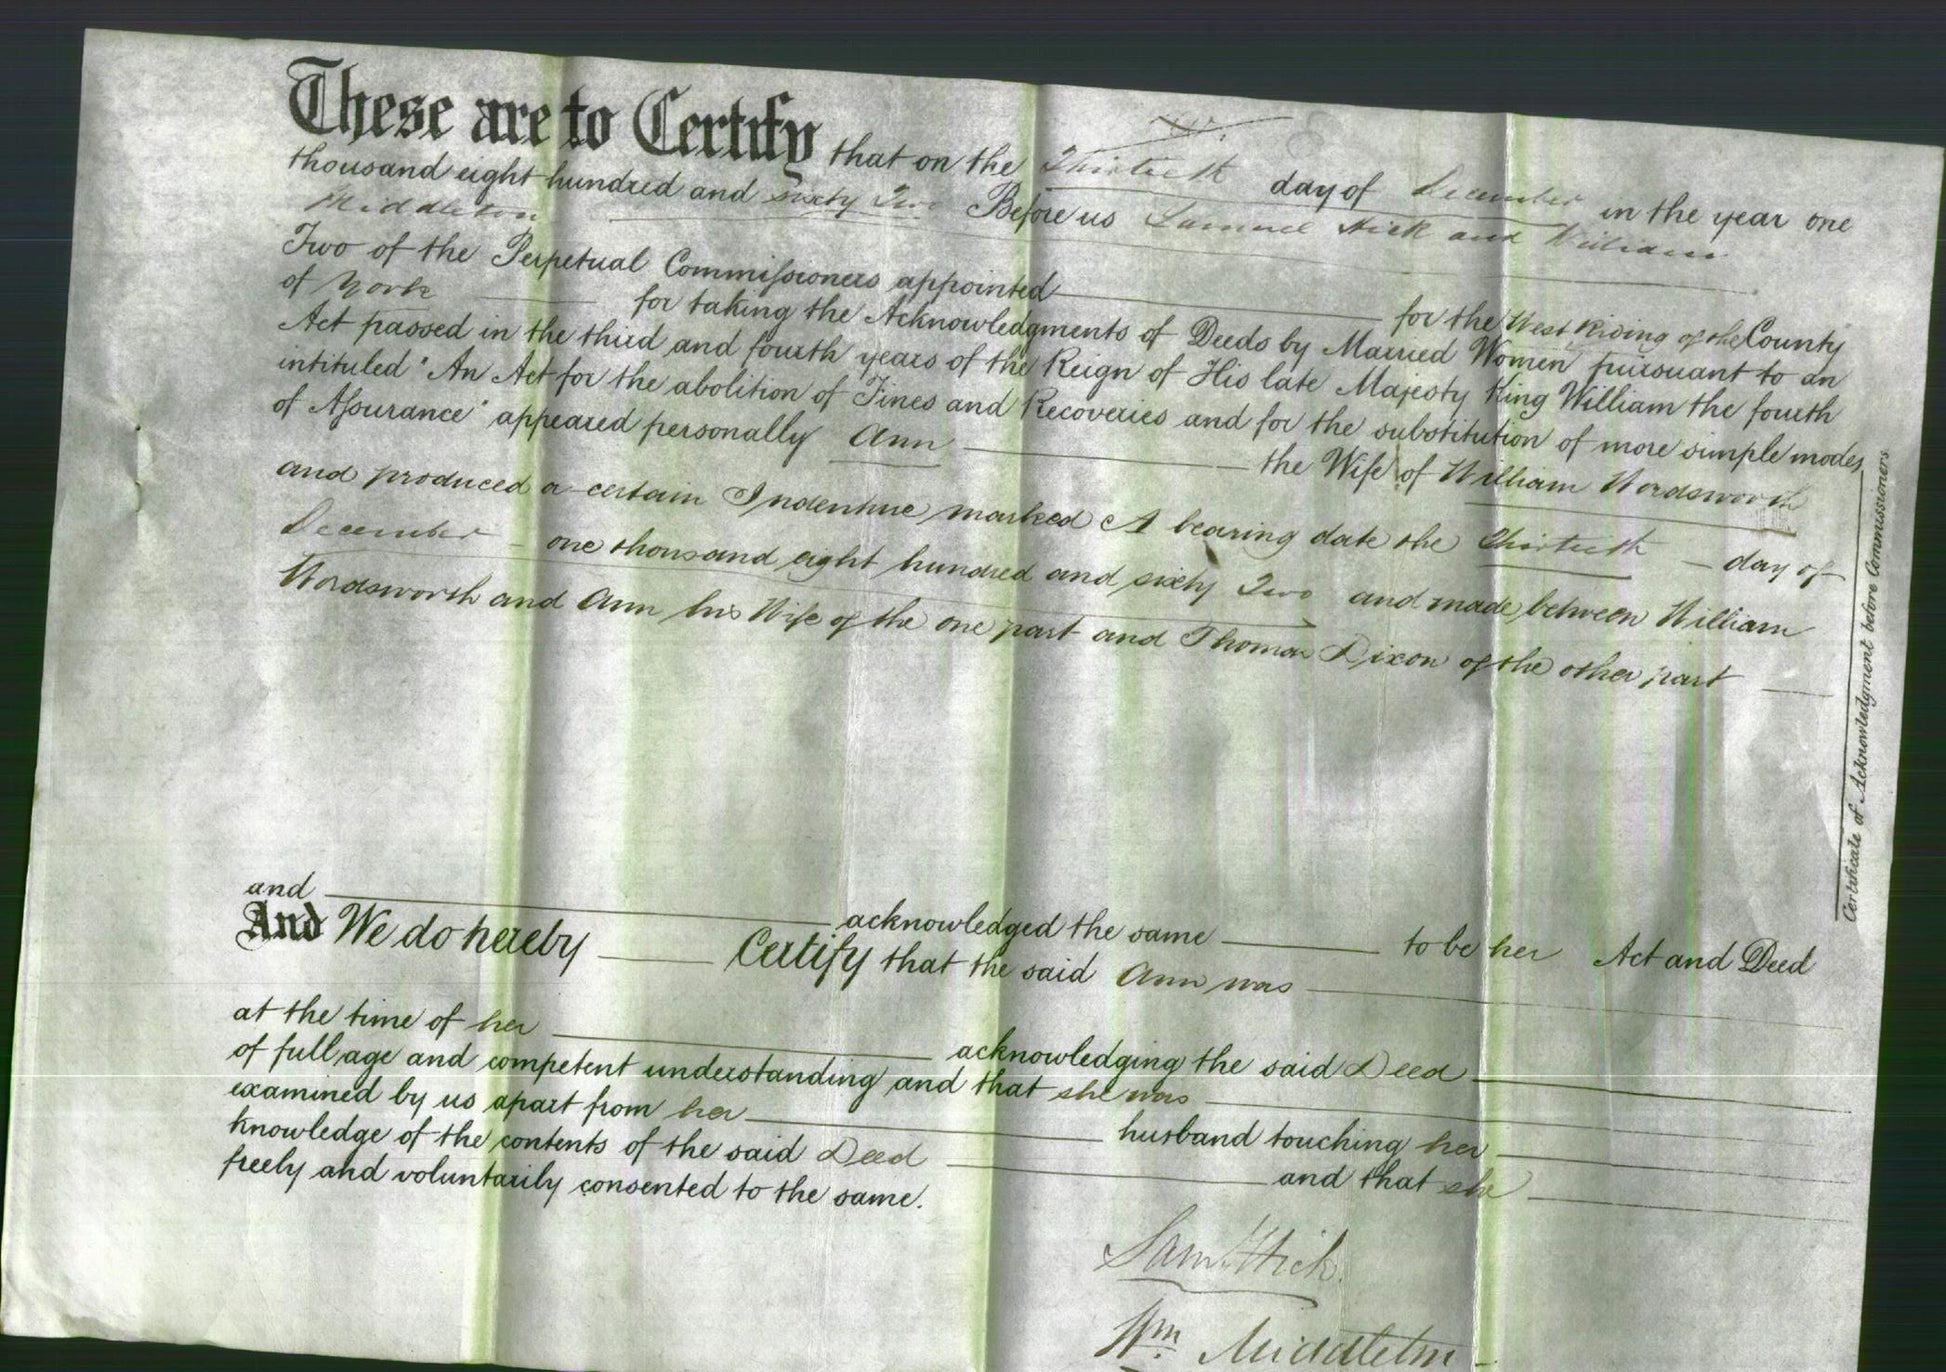 These are to Certify that on the Thirtieth day of December in the year one
thousand eight hundred and sixty Two Before us Samuel Hick and William
Middleton
Two of the Perpetual Commissioners appointed for the West Riding of the County
of York for taking the Acknowledgments of Deeds by Married Women pursuant to an
Act passed in the third and fourth years of the Reign of His late Majesty King William the fourth
intituled "An Act for the abolition of Fines and Recoveries and for the substitution of more simple modes
of Assurance" appeared personally Ann the Wife of William Wordsworth
and produced a certain Indenture marked A bearing date the Thirtieth day of
December one thousand eight hundred and sixty Two and made between William
Wordsworth and Ann his Wife of the one part and Thomas Dixon of the other part
and acknowledged the same to be her Act and Deed
And We do hereby Certify that the said Ann was
at the time of her acknowledging the said Deed
of full age and competent understanding and that she was
examined by us apart from her husband touching her
knowledge of the contents of the said Deed and that she
freely and voluntarily consented to the same.
Saml. Hick.
Wm. Middleton
Certificate of Acknowledgment before Commissioners